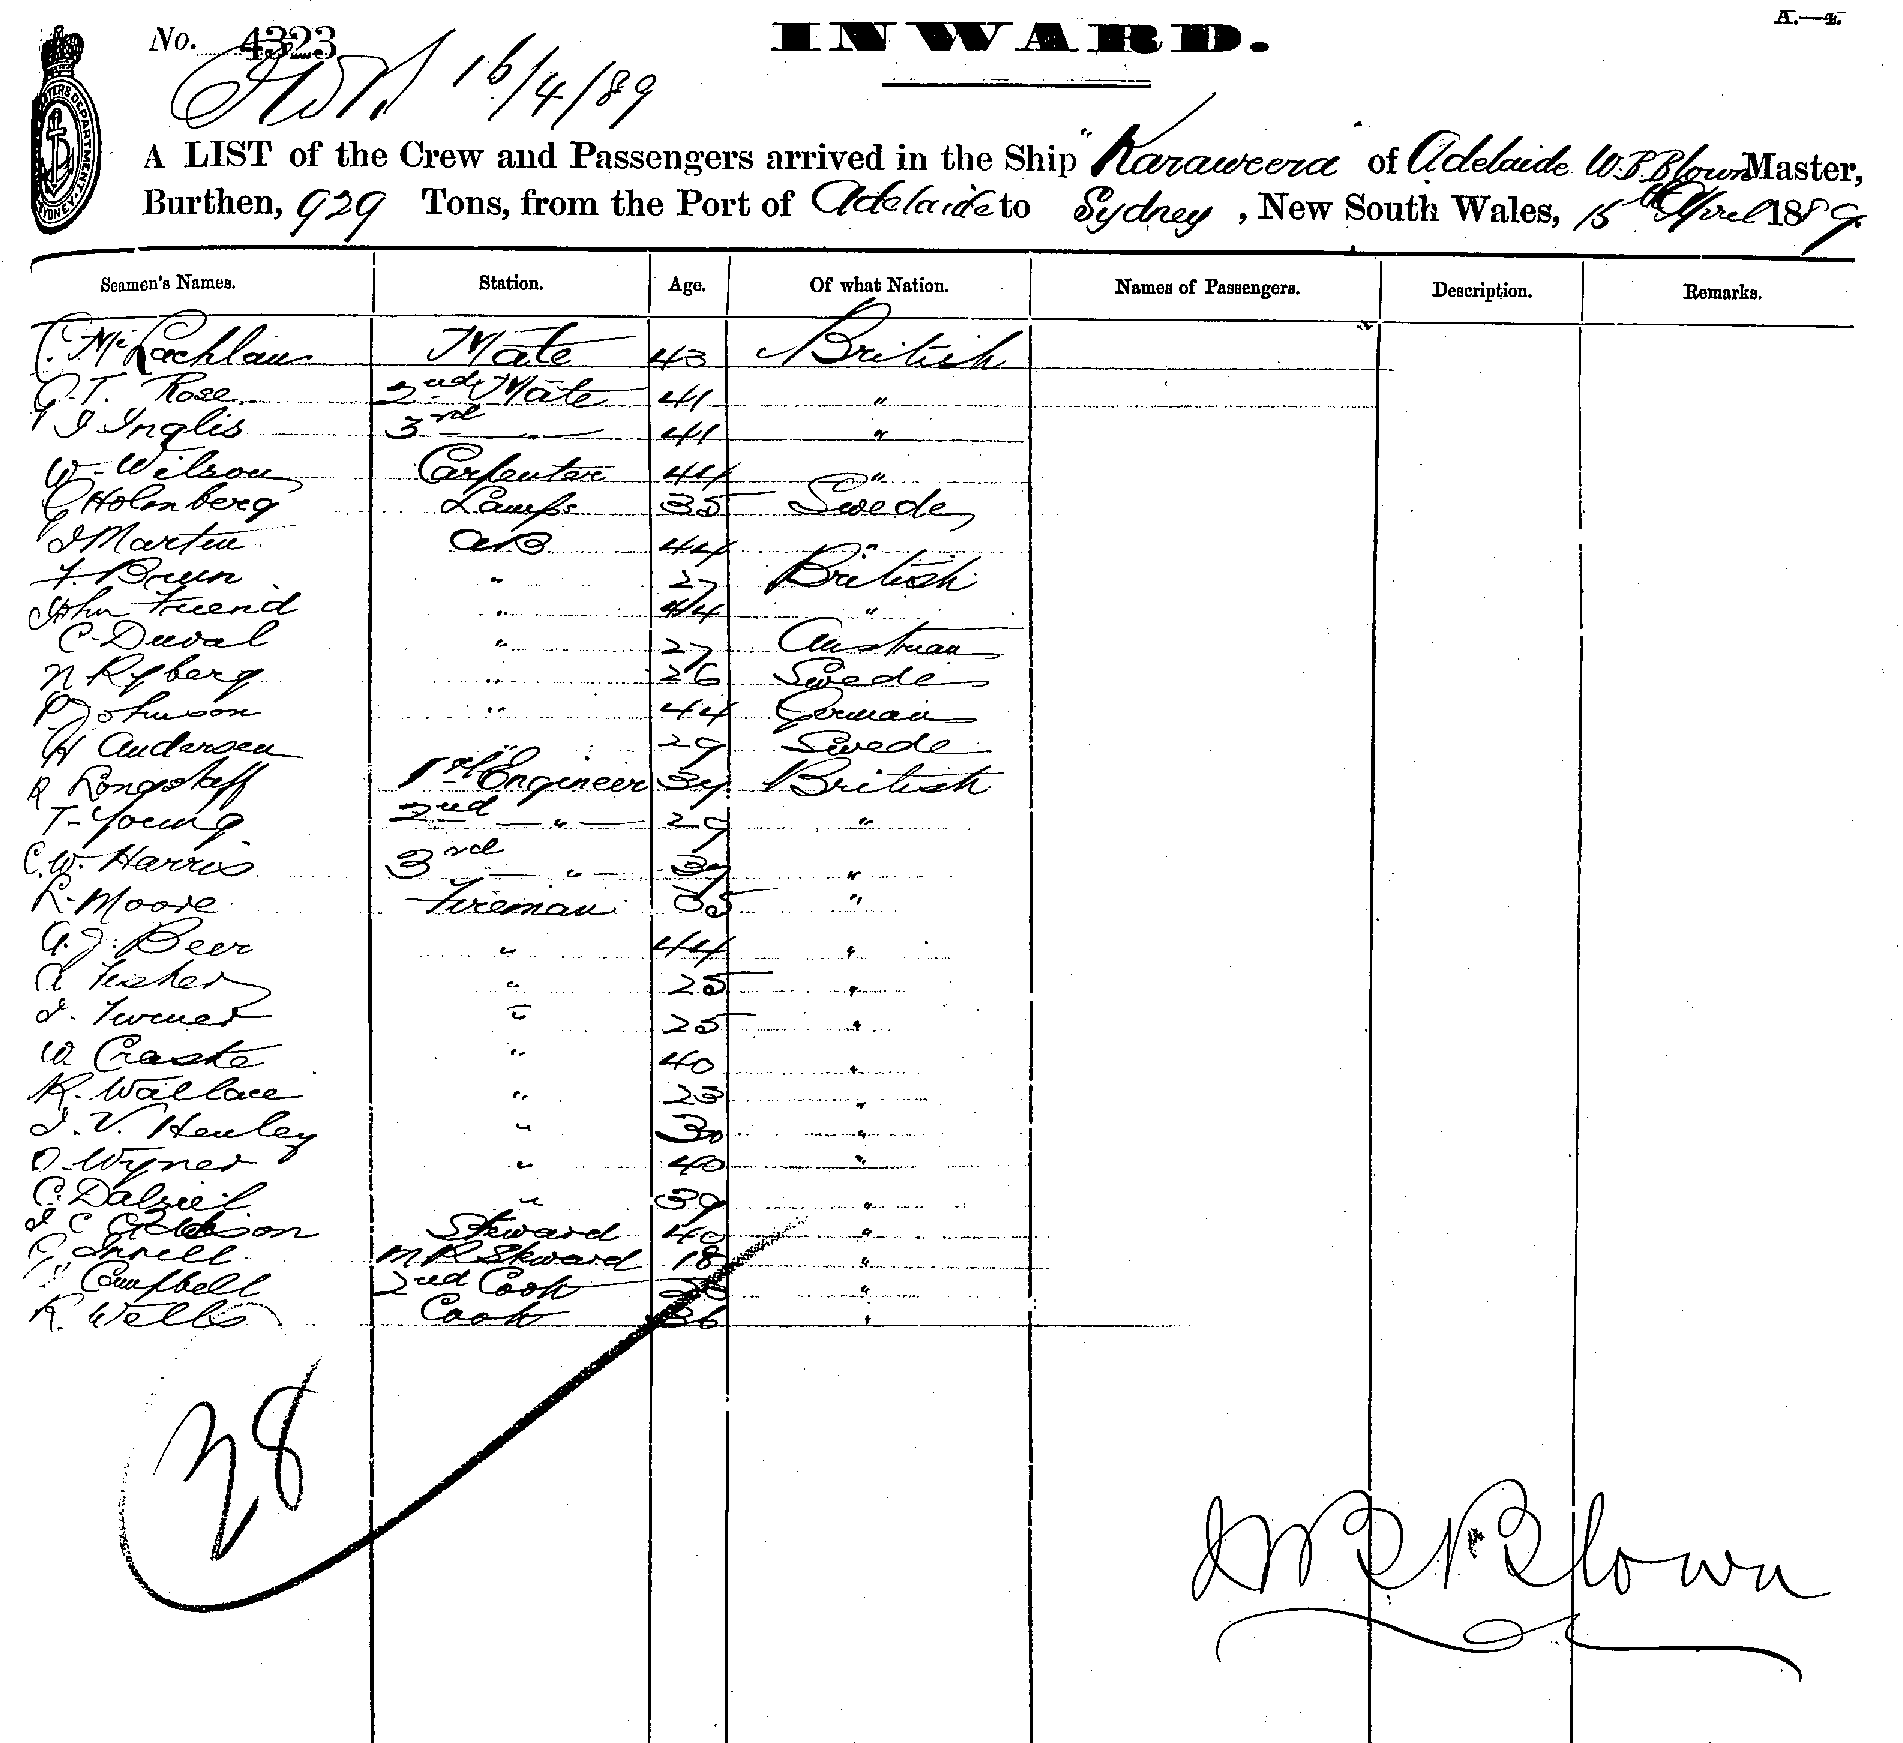 No. 4323
16/4/89
INWARD.
A.—4.
A LIST of the Crew and Passengers arrived in the Ship "Karaweera of Adelaide W.P.Blown Master,
Burthen, 929 Tons, from the Port of Adelaide to Sydney, New South Wales, 15th April 1889
Seamen's Names. Station. Age. Of what Nation. Names of Passengers. Description. Remarks.
C. McLachlan Mate 43 British
G.T. Rose 2nd Mate 41 "
J Inglis 3rd — " — 41 "
W. Wilson Carpenter 44 "
Holmberg Lamps 35 Swede
J Martin AB 44 "
F. Brun " 27 British
John Friend " 44 "
C. Duval " 27 Austrian
N Ryberg " 26 Swede
P Johnson " 44 German
H Andersen " 29 Swede
R Longstaff 1st Engineer 34 British
T. Young 2nd — " — 29 "
C.W. Harris 3rd — " 37 "
R. Moore Fireman 35 "
A.J. Beer " 44 "
A Fisher " 25 "
J. Turner " 25 "
W Craske " 40 "
R. Wallace " 23 "
J.V. Henley " 30 "
O Wyner " 40 "
C. Dalziel " 39 "
J C Steward 40 "
M R Steward 18 "
Campbell 2nd Cook "
R. Wells Cook 36 "
28
Blown